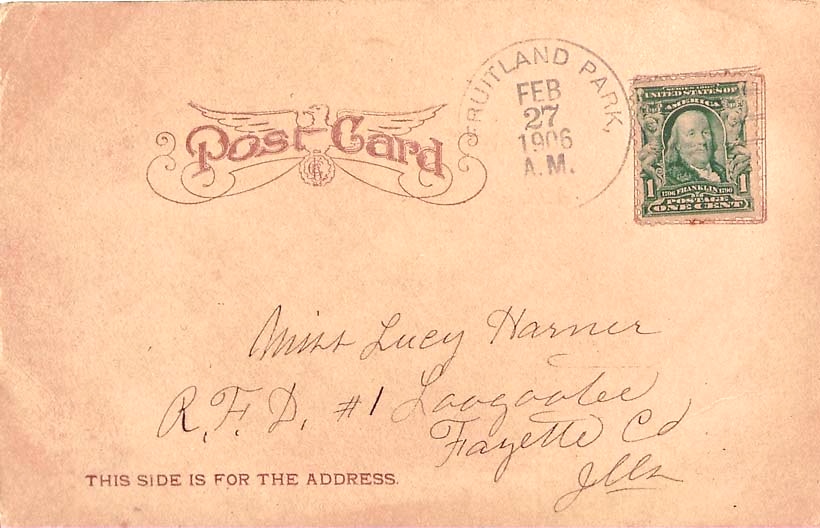 Post Card
FRUITLAND PARK,
FEB
27
1906
A.M.
SERIES 1902
UNITED STATES OF
AMERICA
1 1
1706 FRANKLIN 1790
POSTAGE
ONE CENT
Miss Lucy Harner
R.F.D. #1 Loogootee
Fayette Co
Ills
THIS SIDE IS FOR THE ADDRESS.